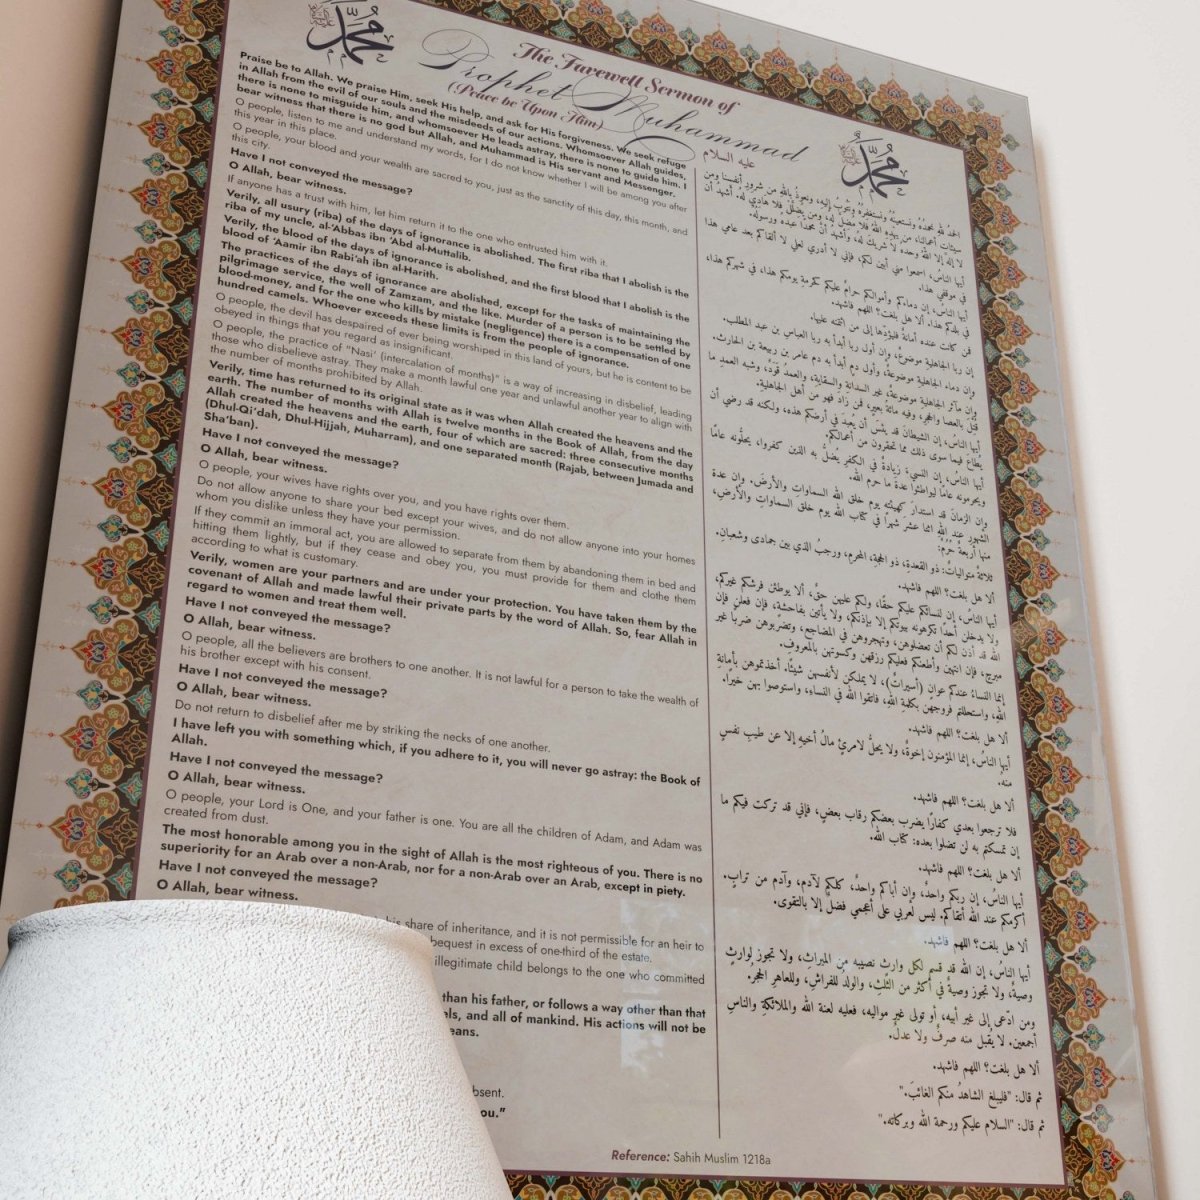 محمد
The Farewell Sermon of
Prophet Muhammad
(Peace be Upon Him)
عليه السلام
محمد
Praise be to Allah. We praise Him, seek His help, and ask for His forgiveness. We seek refuge
in Allah from the evil of our souls and the misdeeds of our actions. Whomsoever Allah guides,
there is none to misguide him, and whomsoever He leads astray, there is none to guide him. I
bear witness that there is no god but Allah, and Muhammad is His servant and Messenger.
O people, listen to me and understand my words, for I do not know whether I will be among you after
this year in this place.
O people, your blood and your wealth are sacred to you, just as the sanctity of this day, this month, and
this city.
Have I not conveyed the message?
O Allah, bear witness.
If anyone has a trust with him, let him return it to the one who entrusted him with it.
Verily, all usury (riba) of the days of ignorance is abolished. The first riba that I abolish is the
riba of my uncle, al-‘Abbas ibn ‘Abd al-Muttalib.
Verily, the blood of the days of ignorance is abolished, and the first blood that I abolish is the
blood of ‘Aamir ibn Rabi‘ah ibn al-Harith.
The practices of the days of ignorance are abolished, except for the tasks of maintaining the
pilgrimage service, the well of Zamzam, and the like. Murder of a person is to be settled by
blood-money, and for the one who kills by mistake (negligence) there is a compensation of one
hundred camels. Whoever exceeds these limits is from the people of ignorance.
O people, the devil has despaired of ever being worshiped in this land of yours, but he is content to be
obeyed in things that you regard as insignificant.
O people, the practice of "Nasi’ (intercalation of months)" is a way of increasing in disbelief, leading
those who disbelieve astray. They make a month lawful one year and unlawful another year to align with
the number of months prohibited by Allah.
Verily, time has returned to its original state as it was when Allah created the heavens and the
earth. The number of months with Allah is twelve months in the Book of Allah, from the day
Allah created the heavens and the earth, four of which are sacred: three consecutive months
(Dhul-Qi‘dah, Dhul-Hijjah, Muharram), and one separated month (Rajab, between Jumada and
Sha‘ban).
Have I not conveyed the message?
O Allah, bear witness.
O people, your wives have rights over you, and you have rights over them.
Do not allow anyone to share your bed except your wives, and do not allow anyone into your homes
whom you dislike unless they have your permission.
If they commit an immoral act, you are allowed to separate from them by abandoning them in bed and
hitting them lightly, but if they cease and obey you, you must provide for them and clothe them
according to what is customary.
Verily, women are your partners and are under your protection. You have taken them by the
covenant of Allah and made lawful their private parts by the word of Allah. So, fear Allah in
regard to women and treat them well.
Have I not conveyed the message?
O Allah, bear witness.
O people, all the believers are brothers to one another. It is not lawful for a person to take the wealth of
his brother except with his consent.
Have I not conveyed the message?
O Allah, bear witness.
Do not return to disbelief after me by striking the necks of one another.
I have left you with something which, if you adhere to it, you will never go astray: the Book of
Allah.
Have I not conveyed the message?
O Allah, bear witness.
O people, your Lord is One, and your father is one. You are all the children of Adam, and Adam was
created from dust.
The most honorable among you in the sight of Allah is the most righteous of you. There is no
superiority for an Arab over a non-Arab, nor for a non-Arab over an Arab, except in piety.
Have I not conveyed the message?
O Allah, bear witness.
his share of inheritance, and it is not permissible for an heir to
bequest in excess of one-third of the estate.
illegitimate child belongs to the one who committed
than his father, or follows a way other than that
and all of mankind. His actions will not be
ou.”
الحمد لله نحمده ونستعينه ونستغفره ونتوب إليه، ونعوذ بالله من شرور أنفسنا ومن
سيئات أعمالنا، من يهده الله فلا مضل له، ومن يضلل فلا هادي له. أشهد أن
لا إله إلا الله وحده لا شريك له، وأشهد أن محمدًا عبده ورسوله.
أيها الناس، اسمعوا مني أبين لكم، فإني لا أدري لعلي لا ألقاكم بعد عامي هذا
في موقفي هذا.
أيها الناس، إن دماءكم وأموالكم حرامٌ عليكم كحرمة يومكم هذا، في شهركم هذا،
في بلدكم هذا. ألا هل بلغت؟ اللهم فاشهد.
فمن كانت عنده أمانةٌ فليؤدّها إلى من ائتمنه عليها.
إن ربا الجاهلية موضوعٌ، وإن أول ربا أبدأ به ربا العباس بن عبد المطلب.
وإن دماء الجاهلية موضوعةٌ، وأول دمٍ أبدأ به دم عامر بن ربيعة بن الحارث.
وإن مآثر الجاهلية موضوعةٌ، غير السدانة والسقاية، والعمد قود، وشبه العمدِ ما
قُتِلَ بالعصا والحجر، وفيه مائة بعيرٍ، فمن زاد فهو من أهل الجاهلية.
أيها الناس، إن الشيطان قد يئس أن يُعبَد في أرضكم هذه، ولكنه قد رضي أن
يُطاعَ فيما سوى ذلك مما تحقرون من أعمالكم.
أيها الناس، إن النسيء زيادة في الكفر يُضَلُّ به الذين كفروا، يحلّونه عامًا
ويحرمونه عامًا ليواطئوا عدةَ ما حرم الله.
وإن الزمان قد استدار كهيئته يوم خلق الله السماواتِ والأرض. وإن عدة
الشهور عند الله اثنا عشر شهرًا في كتاب الله يوم خلق السماواتِ والأرضَ،
منها أربعةٌ حُرُمٌ:
ثلاثةٌ متوالياتٌ: ذو القعدة، ذو الحجة، المحرم، ورجبُ الذي بين جمادى وشعبان.
ألا هل بلغت؟ اللهم فاشهد.
أيها الناس، إن لنسائكم عليكم حقًا، ولكم عليهن حقٌّ، ألا يوطئن فرشكم غيركم،
ولا يدخلن أحدًا تكرهونه بيوتكم إلا بإذنكم، ولا يأتين بفاحشة، فإن فعلن فإن
الله قد أذن لكم أن تعضلوهن، وتهجروهن في المضاجع، وتضربوهن ضربًا غير
مبرح، فإن انتهين وأطعنكم فعليكم رزقهن وكسوتهن بالمعروف.
إنما النساءُ عندكم عوانٍ (أسيراتٌ)، لا يملكن لأنفسهن شيئًا، أخذتموهن بأمانةِ
الله، واستحللتم فروجهن بكلمة الله، فاتقوا الله في النساء، واستوصوا بهن خيرًا.
ألا هل بلغت؟ اللهم فاشهد.
أيها الناس، إنما المؤمنون إخوةٌ، ولا يحلُّ لامرئٍ مالُ أخيه إلا عن طيبِ نفسٍ
منه.
ألا هل بلغت؟ اللهم فاشهد.
فلا ترجعوا بعدي كفارًا يضرب بعضكم رقاب بعضٍ، فإني قد تركت فيكم ما
إن تمسكتم به لن تضلوا بعده: كتاب الله.
ألا هل بلغت؟ اللهم فاشهد.
أيها الناس، إن ربكم واحدٌ، وإن أباكم واحدٌ، كلكم لآدم، وآدم من ترابٍ.
أكرمكم عند الله أتقاكم. ليس لعربي على أعجمي فضلٌ إلا بالتقوى.
ألا هل بلغت؟ اللهم فاشهد.
أيها الناس، إن الله قد قسم لكل وارثٍ نصيبه من الميراث، ولا تجوز لوارثٍ
وصيةٌ، ولا تجوز وصيةٌ في أكثر من الثلث، والولدُ للفراش، وللعاهر الحجرُ.
ومن ادّعى إلى غير أبيه، أو تولى غير مواليه، فعليه لعنة الله والملائكة والناس
أجمعين. لا يُقبل منه صرفٌ ولا عدلٌ.
ألا هل بلغت؟ اللهم فاشهد.
ثم قال: "فليبلغ الشاهدُ منكم الغائبَ."
ثم قال: "السلام عليكم ورحمة الله وبركاته."
Reference: Sahih Muslim 1218a